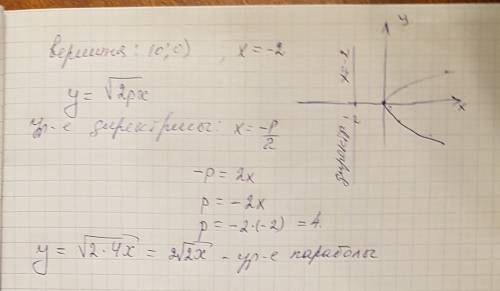 вершина: (0; 0), x = -2
y = √2px
ур-е директрисы: x = -p/2
-p = 2x
p = -2x
p = -2·(-2) = 4.
y = √2·4x = 2√2x - ур-е параболы
y
x = -2
-2
x
директр.